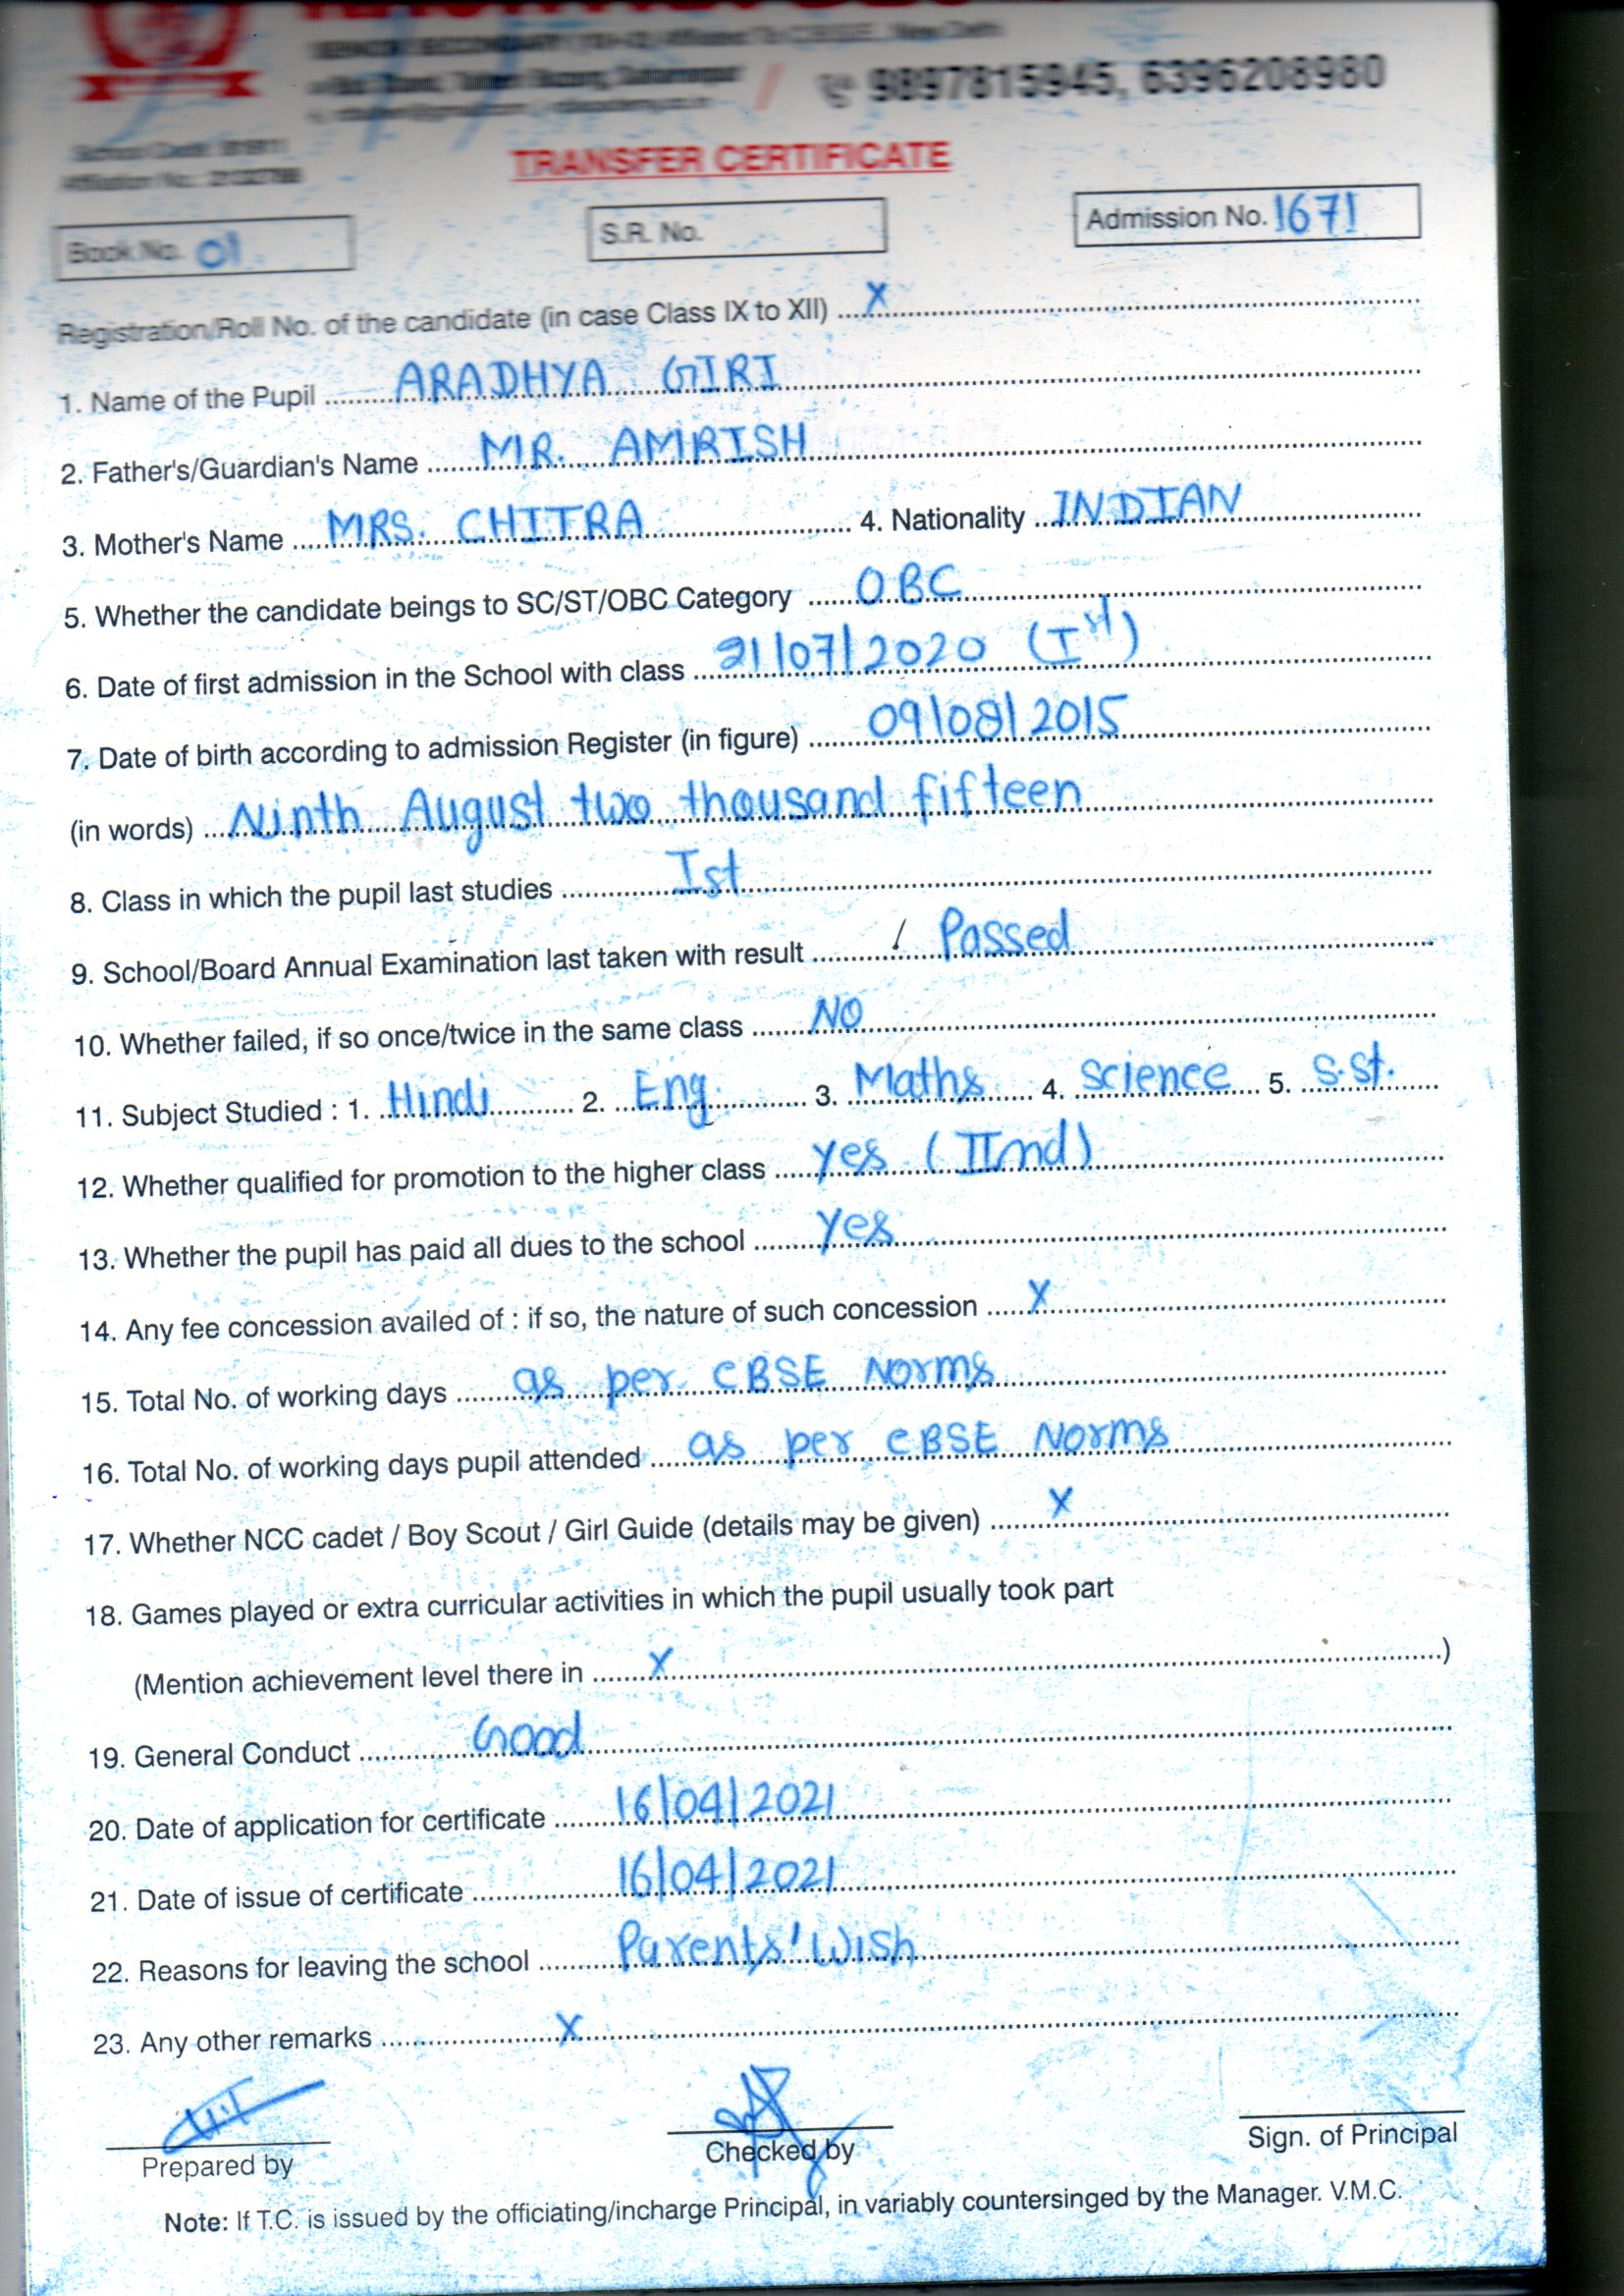 SENIOR SECONDARY (10+2) Affiliated To C.B.S.E., New Delhi
9897815945, 6396208980
School Code:
Affiliation No.:
TRANSFER CERTIFICATE
Book No. 01 S.R. No. Admission No. 1671
Registration/Roll No. of the candidate (in case Class IX to XII) X
1. Name of the Pupil ARADHYA GIRI
2. Father's/Guardian's Name MR. AMRISH
3. Mother's Name MRS. CHITRA 4. Nationality INDIAN
5. Whether the candidate beings to SC/ST/OBC Category OBC
6. Date of first admission in the School with class 21/07/2020 (Ist)
7. Date of birth according to admission Register (in figure) 09/08/2015
(in words) Ninth August two thousand fifteen
8. Class in which the pupil last studies Ist
9. School/Board Annual Examination last taken with result Passed
10. Whether failed, if so once/twice in the same class NO
11. Subject Studied : 1. Hindi 2. Eng. 3. Maths 4. Science 5. S.St.
12. Whether qualified for promotion to the higher class yes (IInd)
13. Whether the pupil has paid all dues to the school yes
14. Any fee concession availed of : if so, the nature of such concession X
15. Total No. of working days as per CBSE Norms
16. Total No. of working days pupil attended as per CBSE Norms
17. Whether NCC cadet / Boy Scout / Girl Guide (details may be given) X
18. Games played or extra curricular activities in which the pupil usually took part
(Mention achievement level there in X )
19. General Conduct Good
20. Date of application for certificate 16/04/2021
21. Date of issue of certificate 16/04/2021
22. Reasons for leaving the school Parents' Wish
23. Any other remarks X
Prepared by Checked by Sign. of Principal
Note: If T.C. is issued by the officiating/incharge Principal, in variably countersinged by the Manager. V.M.C.